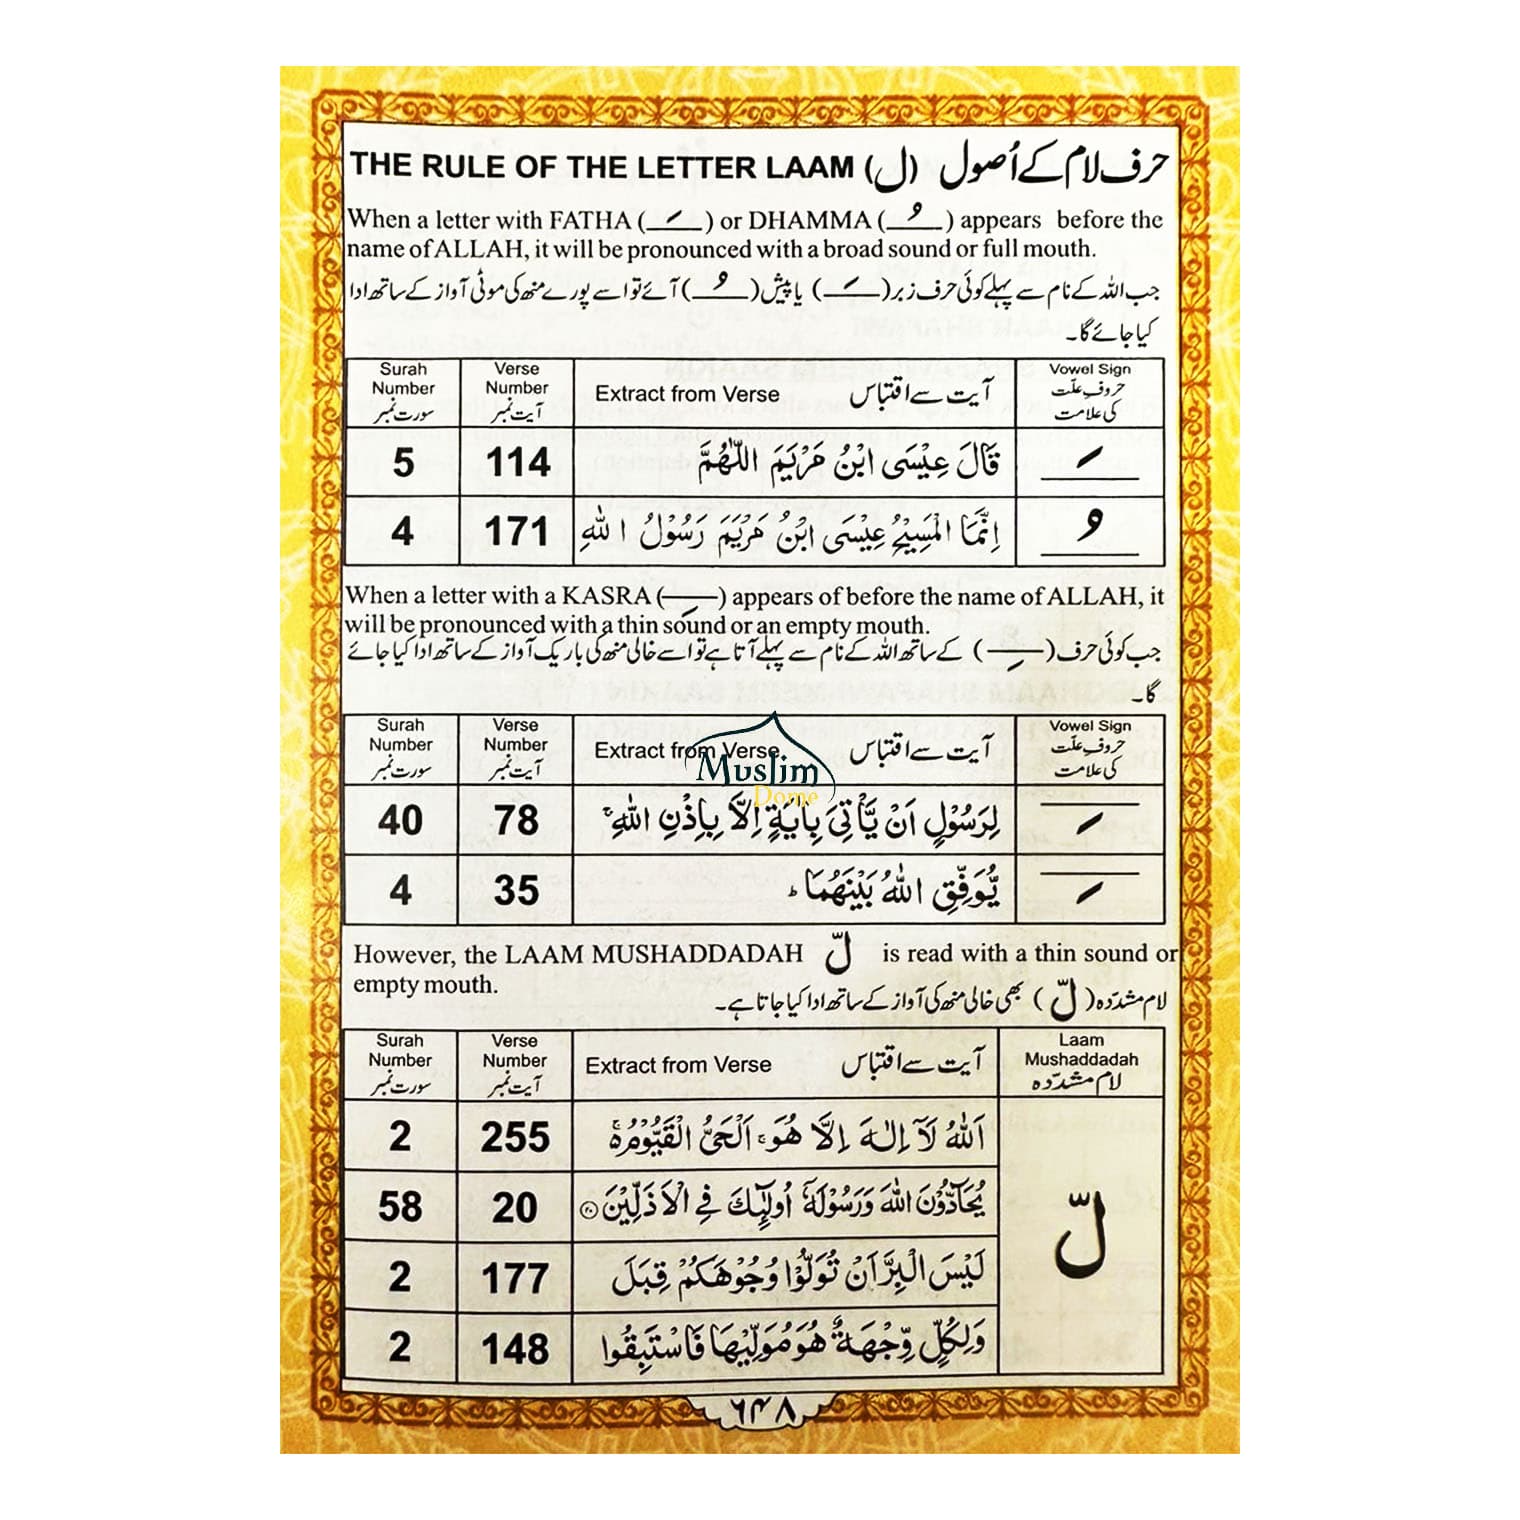 THE RULE OF THE LETTER LAAM (ل) حرف لام کے اُصول
When a letter with FATHA (ـَ) or DHAMMA (ـُ) appears before the
name of ALLAH, it will be pronounced with a broad sound or full mouth.
جب اللہ کے نام سے پہلے کوئی حرف زبر (ـَ) یا پیش (ـُ) آئے تو اسے پورے منھ کی موٹی آواز کے ساتھ ادا
کیا جائے گا۔
Surah Number سورت نمبر Verse Number آیت نمبر Extract from Verse آیت سے اقتباس Vowel Sign حروفِ علّت کی علامت
5 114 قَالَ عِيْسَى ابْنُ مَرْيَمَ اللّٰهُمَّ ـَ
4 171 اِنَّمَا الْمَسِيْحُ عِيْسَى ابْنُ مَرْيَمَ رَسُوْلُ اللّٰهِ ـُ
When a letter with a KASRA (ـِ) appears of before the name of ALLAH, it
will be pronounced with a thin sound or an empty mouth.
جب کوئی حرف (ـِ) کے ساتھ اللہ کے نام سے پہلے آتا ہے تو اسے خالی منھ کی باریک آواز کے ساتھ ادا کیا جائے
گا۔
Surah Number سورت نمبر Verse Number آیت نمبر Extract from Verse آیت سے اقتباس Vowel Sign حروفِ علّت کی علامت
Muslim
Dome
40 78 لِرَسُوْلٍ اَنْ يَّاْتِىَ بِاٰيَةٍ اِلَّا بِاِذْنِ اللّٰهِ ۚ ـِ
4 35 يُّوَفِّقِ اللّٰهُ بَيْنَهُمَا ؕ ـِ
However, the LAAM MUSHADDADAH لّ is read with a thin sound or
empty mouth.
لام مشدّدہ (لّ) بھی خالی منھ کی آواز کے ساتھ ادا کیا جاتا ہے۔
Surah Number سورت نمبر Verse Number آیت نمبر Extract from Verse آیت سے اقتباس Laam Mushaddadah لام مشدّدہ
2 255 اَللّٰهُ لَآ اِلٰهَ اِلَّا هُوَ ۚ اَلْحَىُّ الْقَيُّوْمُ ۚ
58 20 يُحَآدُّوْنَ اللّٰهَ وَرَسُوْلَهٗۤ اُولٰٓئِكَ فِى الْاَذَلِّيْنَ ۝۲۰
لّ
2 177 لَيْسَ الْبِرَّ اَنْ تُوَلُّوْا وُجُوْهَكُمْ قِبَلَ
2 148 وَلِكُلٍّ وِّجْهَةٌ هُوَ مُوَلِّيْهَا فَاسْتَبِقُوا
۶۴۸